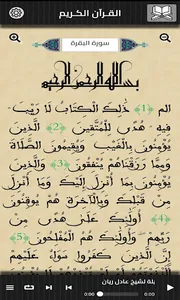 القرآن الكريم
سورة البقرة
بسم الله الرحمن الرحيم
الم ﴿1﴾ ذَلِكَ الْكِتَابُ لَا رَيْبَ
فِيهِ هُدًى لِلْمُتَّقِينَ ﴿2﴾ الَّذِينَ
يُؤْمِنُونَ بِالْغَيْبِ وَيُقِيمُونَ الصَّلَاةَ
وَمِمَّا رَزَقْنَاهُمْ يُنْفِقُونَ ﴿3﴾ وَالَّذِينَ
يُؤْمِنُونَ بِمَا أُنْزِلَ إِلَيْكَ وَمَا أُنْزِلَ
مِنْ قَبْلِكَ وَبِالْآخِرَةِ هُمْ يُوقِنُونَ
﴿4﴾ أُولَئِكَ عَلَى هُدًى مِنْ
رَبِّهِمْ وَأُولَئِكَ هُمُ الْمُفْلِحُونَ ﴿5﴾
بلة لشيخ عادل ريان